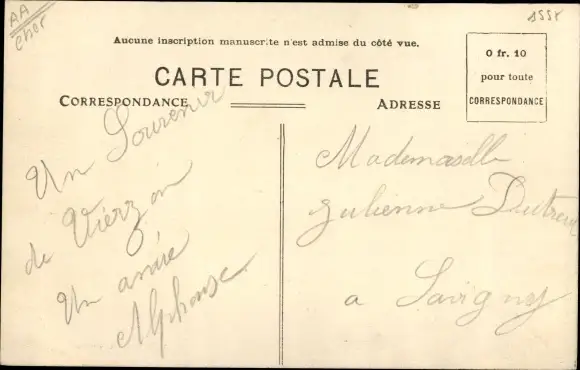 AA
Cher
Aucune inscription manuscrite n'est admise du côté vue.
CARTE POSTALE
CORRESPONDANCE
ADRESSE
0 fr. 10
pour toute
CORRESPONDANCE
Un Souvenir
de Vierzon
Un amie
Alphonse
Mademoiselle
Julienne
a Savigny